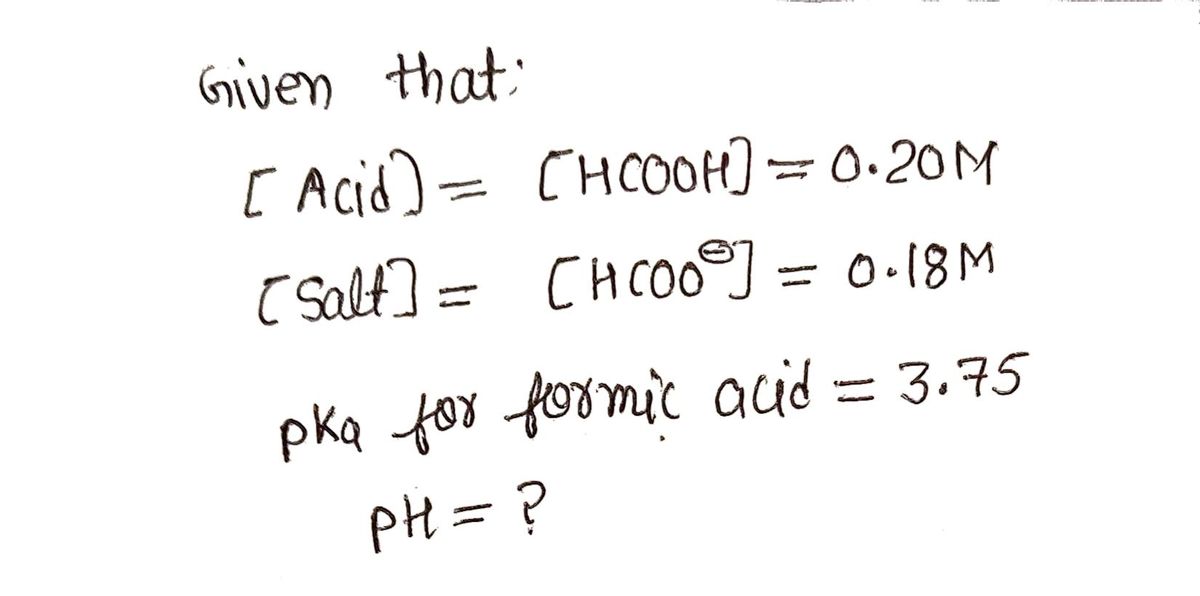 Given that:
[Acid] = [HCOOH] = 0.20M
[Salt] = [HCOO⊖] = 0.18M
pKa for formic acid = 3.75
pH = ?